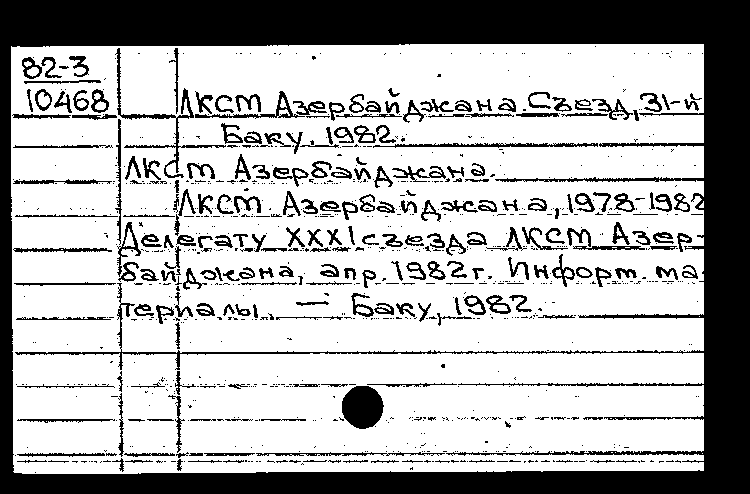 82-3
10468
ЛКСМ Азербайджана. Съезд, 31-й
Баку. 1982.
ЛКСМ Азербайджана.
ЛКСМ Азербайджана, 1978-1982
Делегату XXXI съезда ЛКСМ Азер-
байджана, апр. 1982 г. Информ. ма-
териалы. — Баку, 1982.